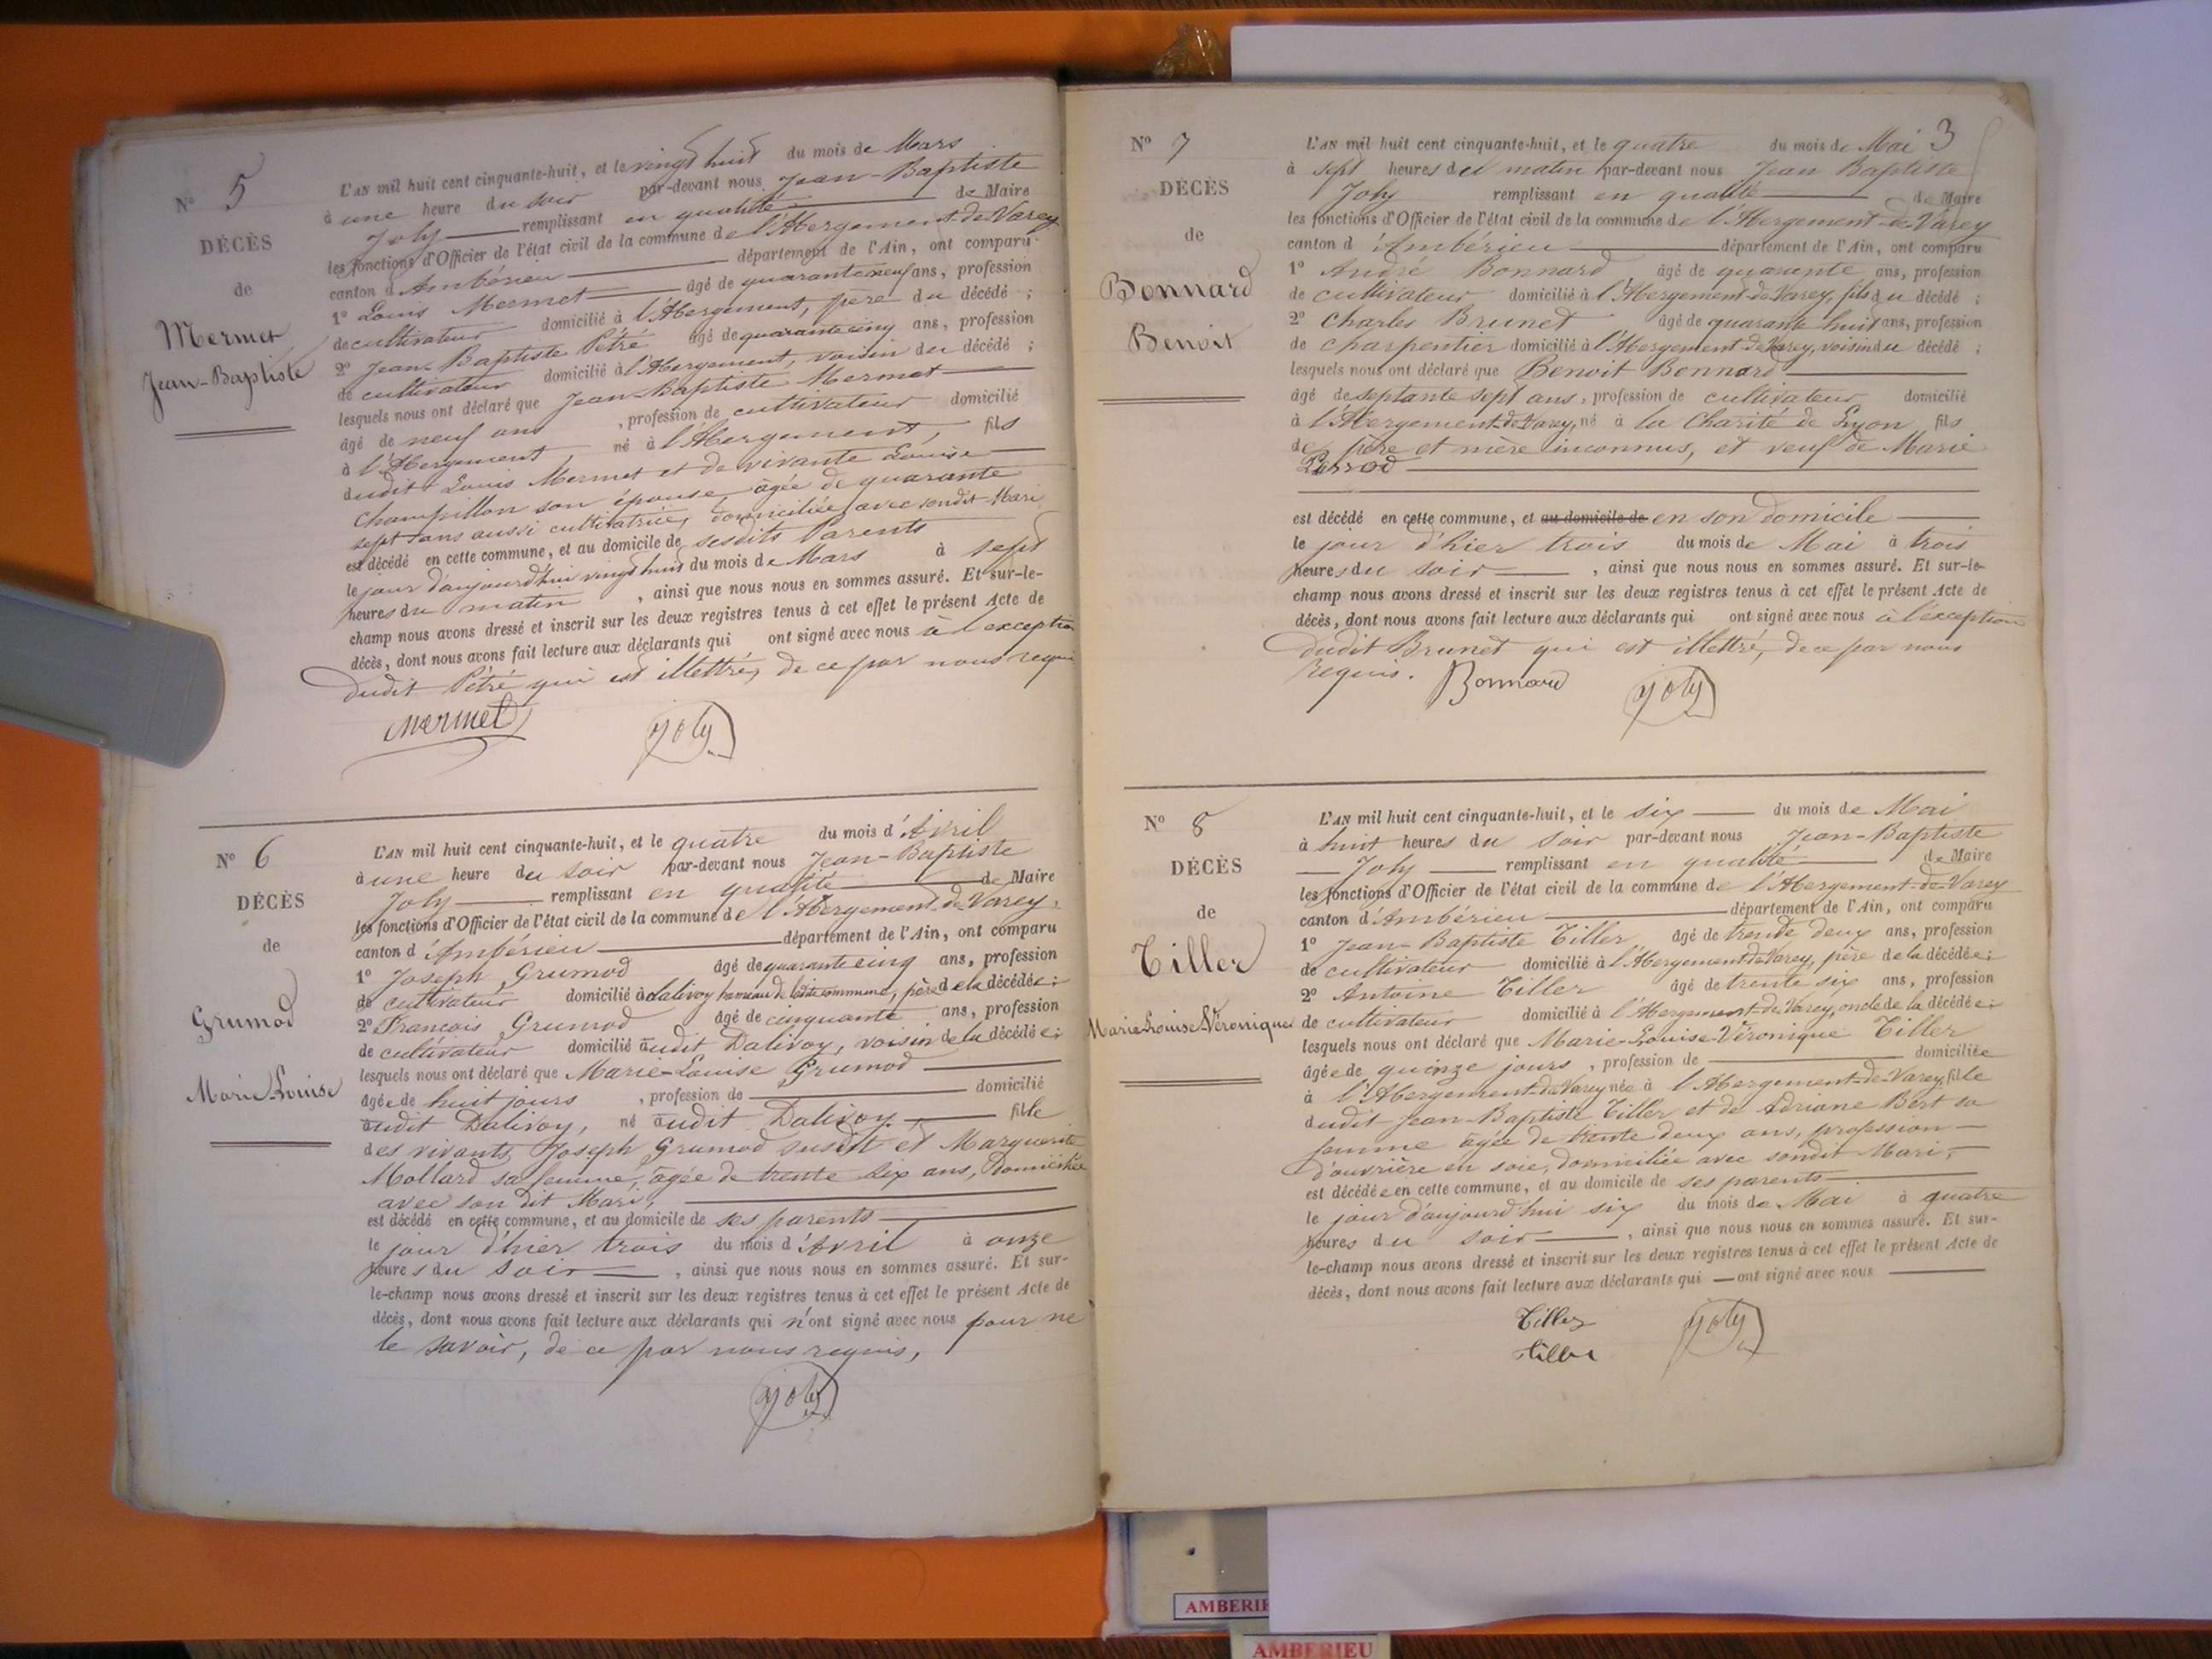 N° 5
DÉCÈS
de
Mermet
Jean-Baptiste
L'AN mil huit cent cinquante-huit, et le vingt huit du mois de Mars
à une heure du soir par-devant nous Jean-Baptiste
Joly remplissant en qualité de Maire
les fonctions d'Officier de l'état civil de la commune de l'Abergement-de-Varey
canton d'Ambérieu département de l'Ain, ont comparu:
1° Louis Mermet âgé de quarante neuf ans, profession
de cultivateur domicilié à l'Abergement, père du décédé ;
2° Jean-Baptiste Pétré âgé de quarante cinq ans, profession
de cultivateur domicilié à l'Abergement, voisin du décédé ;
lesquels nous ont déclaré que Jean-Baptiste Mermet
âgé de neuf ans , profession de cultivateur domicilié
à l'Abergement né à l'Abergement, fils
dudit Louis Mermet et de vivante Louise
Champillon son épouse, âgée de quarante
sept ans aussi cultivatrice, domiciliée avec sondit Mari
est décédé en cette commune, et au domicile de sesdits Parents
le jour d'aujourd'hui vingt huit du mois de Mars à sept
heures du matin , ainsi que nous nous en sommes assuré. Et sur-le-
champ nous avons dressé et inscrit sur les deux registres tenus à cet effet le présent Acte de
décès, dont nous avons fait lecture aux déclarants qui ont signé avec nous à l'exception
dudit Pétré qui est illettré, de ce par nous requis
Mermet Joly
N° 6
DÉCÈS
de
Grumod
Marie-Louise
L'AN mil huit cent cinquante-huit, et le quatre du mois d'Avril
à une heure du soir par-devant nous Jean-Baptiste
Joly remplissant en qualité de Maire
les fonctions d'Officier de l'état civil de la commune de l'Abergement-de-Varey,
canton d'Ambérieu département de l'Ain, ont comparu
1° Joseph Grumod âgé de quarante cinq ans, profession
de cultivateur domicilié à Dalivoy hameau de ladite commune, père de la décédée ;
2° François Grumod âgé de cinquante ans, profession
de cultivateur domicilié audit Dalivoy, voisin de la décédée ;
lesquels nous ont déclaré que Marie-Louise Grumod
âgée de huit jours , profession de domicilié
audit Dalivoy, né audit Dalivoy, fille
des vivants Joseph Grumod susdit et Marguerite
Mollard sa femme, âgée de trente six ans, Domiciliée
avec son dit Mari,
est décédé en cette commune, et au domicile de ses parents
le jour d'hier trois du mois d'Avril à onze
heures du soir , ainsi que nous nous en sommes assuré. Et sur-
le-champ nous avons dressé et inscrit sur les deux registres tenus à cet effet le présent Acte de
décès, dont nous avons fait lecture aux déclarants qui n'ont signé avec nous pour ne
le savoir, de ce par nous requis,
Joly
3
N° 7
DÉCÈS
de
Bonnard
Benoit
L'AN mil huit cent cinquante-huit, et le quatre du mois de Mai
à sept heures du matin par-devant nous Jean Baptiste
Joly remplissant en qualité de Maire
les fonctions d'Officier de l'état civil de la commune de l'Abergement-de-Varey
canton d'Ambérieu département de l'Ain, ont comparu
1° André Bonnard âgé de quarante ans, profession
de cultivateur domicilié à l'Abergement-de-Varey, fils du décédé ;
2° Charles Brunet âgé de quarante huit ans, profession
de charpentier domicilié à l'Abergement-de-Varey, voisin du décédé ;
lesquels nous ont déclaré que Benoit Bonnard
âgé de septante sept ans, profession de cultivateur domicilié
à l'Abergement-de-Varey, né à la Charité de Lyon fils
de père et mère inconnus, et veuf de Marie
Perrod
est décédé en cette commune, et au domicile de en son domicile
le jour d'hier trois du mois de Mai à trois
heures du soir , ainsi que nous nous en sommes assuré. Et sur-le-
champ nous avons dressé et inscrit sur les deux registres tenus à cet effet le présent Acte de
décès, dont nous avons fait lecture aux déclarants qui ont signé avec nous à l'exception
dudit Brunet qui est illettré, de ce par nous
requis. Bonnard Joly
N° 8
DÉCÈS
de
Tiller
Marie-Louise-Véronique
L'AN mil huit cent cinquante-huit, et le six du mois de Mai
à huit heures du soir par-devant nous Jean-Baptiste
Joly remplissant en qualité de Maire
les fonctions d'Officier de l'état civil de la commune de l'Abergement-de-Varey
canton d'Ambérieu département de l'Ain, ont comparu
1° Jean-Baptiste Tiller âgé de trente deux ans, profession
de cultivateur domicilié à l'Abergement-de-Varey, père de la décédée ;
2° Antoine Tiller âgé de trente six ans, profession
de cultivateur domicilié à l'Abergement-de-Varey, oncle de la décédée ;
lesquels nous ont déclaré que Marie-Louise-Véronique Tiller
âgée de quinze jours , profession de domiciliée
à l'Abergement-de-Varey née à l'Abergement-de-Varey, fille
dudit Jean-Baptiste Tiller et de Adriane Bert sa
femme âgée de trente deux ans, profession
d'ouvrière en soie, domiciliée avec sondit Mari,
est décédée en cette commune, et au domicile de ses parents
le jour d'aujourd'hui six du mois de Mai à quatre
heures du soir , ainsi que nous nous en sommes assuré. Et sur-
le-champ nous avons dressé et inscrit sur les deux registres tenus à cet effet le présent Acte de
décès, dont nous avons fait lecture aux déclarants qui ont signé avec nous
Tiller Joly
Tiller
AMBERIE
AMBERIEU